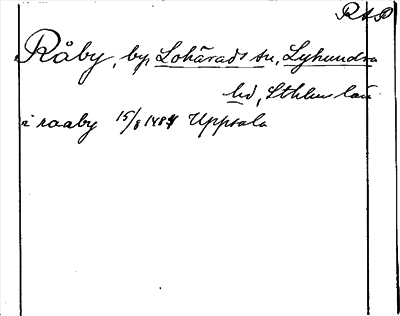 RAP
Råby, by, Lohärads sn, Lyhundra
hd, Sthlms län
i raaby 15/8 1484 Uppsala